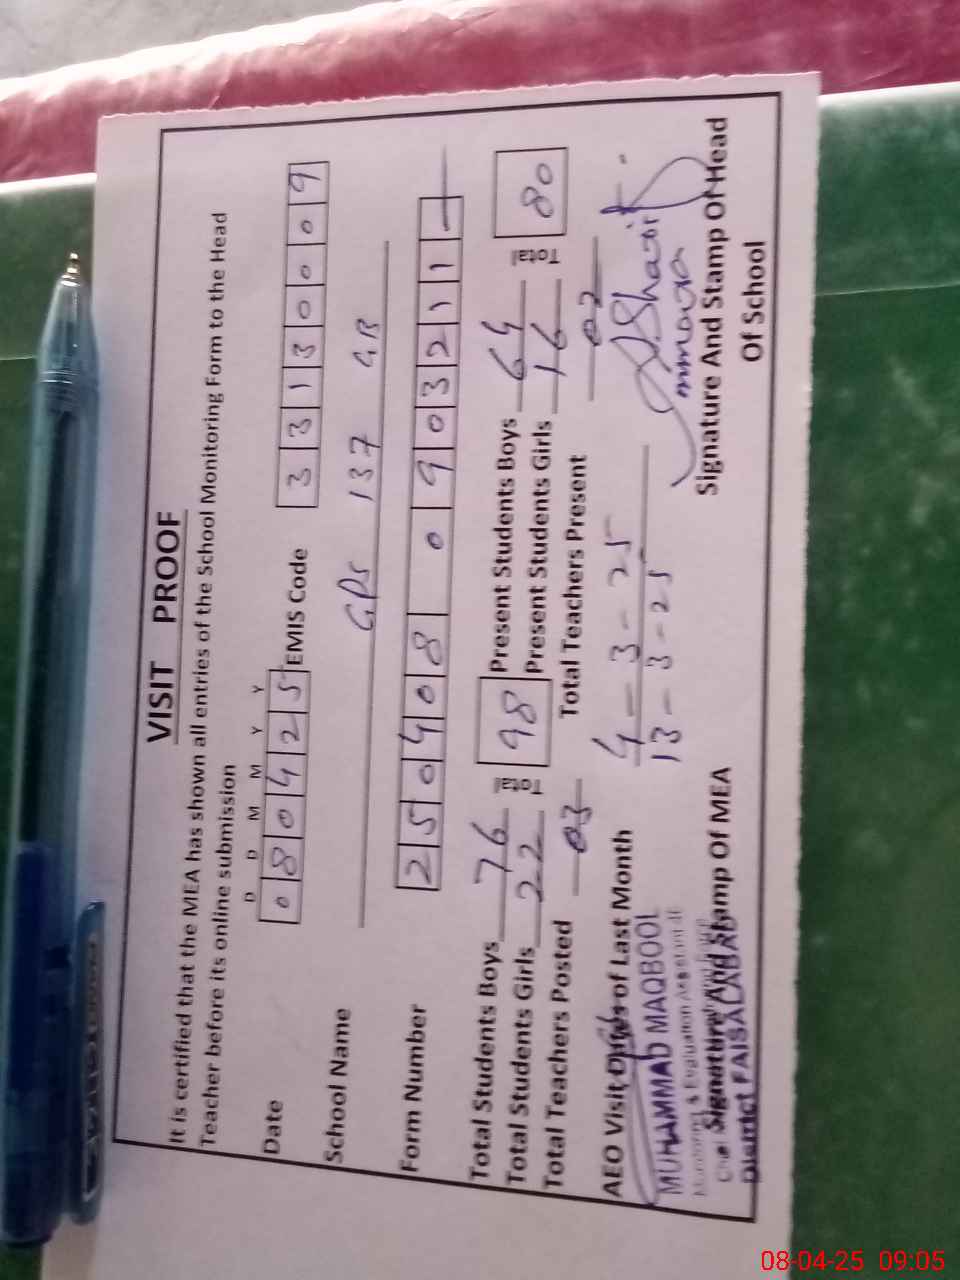 VISIT PROOF
It is certified that the MEA has shown all entries of the School Monitoring Form to the Head
Teacher before its online submission
D D M M Y Y
Date 0 8 0 4 2 5 EMIS Code 3 3 1 3 0 0 0 9
School Name GPS 137 GB
Form Number 2 5 0 4 0 8 0 9 0 3 2 1 1
Total Students Boys 76 Total 98 Present Students Boys 64 Total 80
Total Students Girls 22 Present Students Girls 16
Total Teachers Posted 03 Total Teachers Present 02
AEO Visit Dates of Last Month 4-3-25
13-3-25
MUHAMMAD MAQBOOL
Monitoring & Evaluation Assistant
Signature And Stamp Of MEA
District FAISALABAD
Signature And Stamp Of Head
Of School
08-04-25 09:05